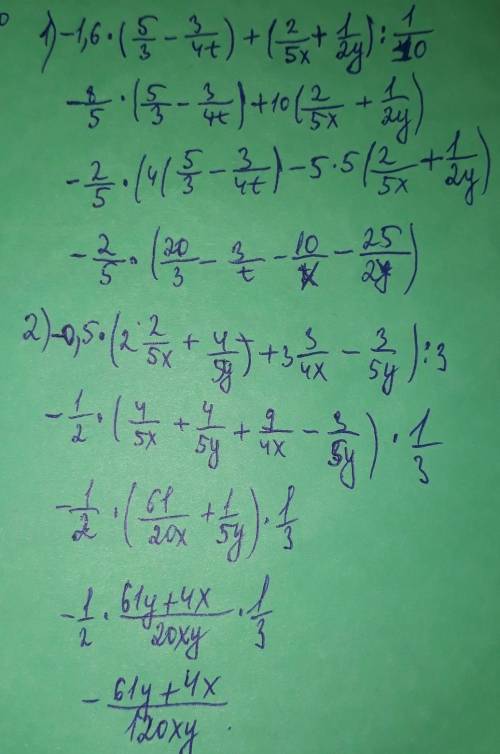 1) -1,6 · (5/3 - 3/4t) + (2/5x + 1/2y) : 1/10
-8/5 · (5/3 - 3/4t) + 10(2/5x + 1/2y)
-2/5 · (4(5/3 - 3/4t) - 5·5(2/5x + 1/2y)
-2/5 · (20/3 - 3/t - 10/x - 25/2y)
2) -0,5 · (2·2/5x + 4/5y) + 3 3/4x - 3/5y) : 3
-1/2 · (4/5x + 4/5y + 9/4x - 3/5y) · 1/3
-1/2 · (61/20x + 1/5y) · 1/3
-1/2 · 61y+4x/20xy · 1/3
- 61y+4x/120xy.